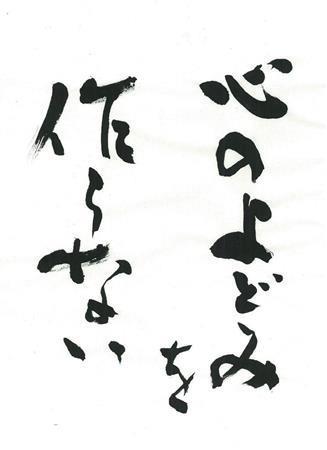 心のよどみを
作らない